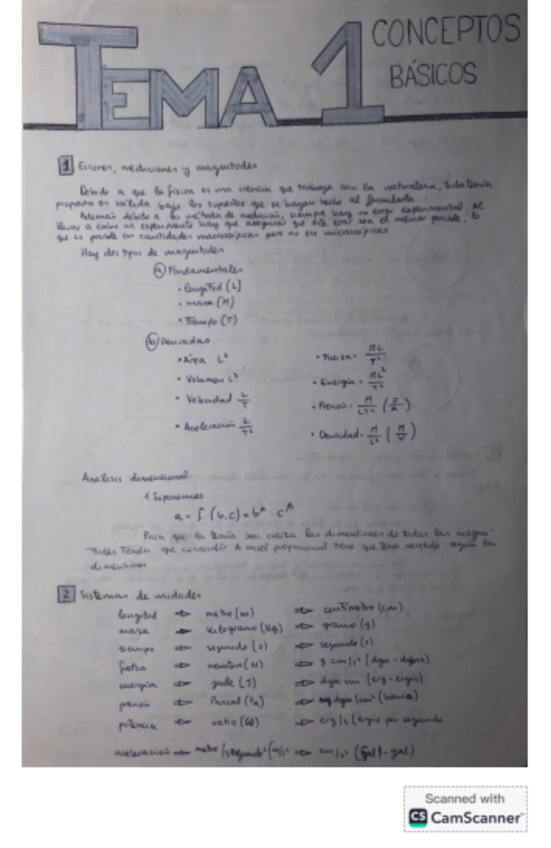 TEMA 1 CONCEPTOS
BÁSICOS
1 Errores, mediciones y magnitudes
Debido a que la física es una ciencia que trabaja con la naturaleza, toda teoría
propuesta es válida bajo los supuestos que se hayan hecho al formularla.
Además debido a los métodos de medición, siempre hay un error experimental. Al
llevar a cabo un experimento hay que asegurar que este error sea el menor posible, lo
que es posible en cantidades macroscópicas pero no en microscópicas
Hay dos tipos de magnitudes
a) Fundamentales
• Longitud (L)
• masa (M)
• Tiempo (T)
b) Derivadas
• Área L²
• Volumen L³
• Velocidad L/T
• Aceleración L/T²
• Fuerza = ML/T²
• Energía = ML²/T²
• Presión = M/LT² (F/A)
• Densidad = M/L³ (M/V)
Análisis dimensional.
1. Suponemos
a = f (b,c) = b^α · c^β
Para que la teoría sea cierta las dimensiones de todas las magni-
tudes tienen que coincidir. A nivel proporcional tiene que tener sentido según las
dimensiones
2 Sistemas de unidades
longitud ⇒ metro (m) ⇒ centímetro (cm)
masa ⇒ kilogramo (kg) ⇒ gramo (g)
tiempo ⇒ segundo (s) ⇒ segundo (s)
fuerza ⇒ newton (N) ⇒ g cm/s² (dyn - dyna)
energía ⇒ julio (J) ⇒ dyn cm (erg - ergio)
presión ⇒ Pascal (Pa) ⇒ dyn/cm² (baria)
potencia ⇒ vatio (W) ⇒ erg/s (ergio por segundo
aceleración ⇒ metro/segundo² (m/s² ⇒ cm/s² (Gal - gal)
Scanned with
CS CamScanner